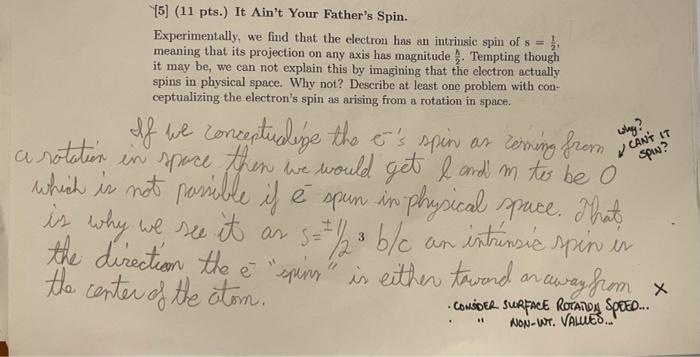 [5] (11 pts.) It Ain't Your Father's Spin.
Experimentally, we find that the electron has an intrinsic spin of s = 1/2,
meaning that its projection on any axis has magnitude ℏ/2. Tempting though
it may be, we can not explain this by imagining that the electron actually
spins in physical space. Why not? Describe at least one problem with con-
ceptualizing the electron's spin as arising from a rotation in space.
If we conceptualize the e⁻'s spin as coming from
a rotation in space then we would get l and m to be 0
which is not possible if e⁻ spun in physical space. That
is why we see it as s=±1/2 b/c an intrinsic spin is
the direction the e⁻ "spins" is either toward or away from
the center of the atom.
why?
CAN'T IT
SPIN?
X
· CONSIDER SURFACE ROTATION SPEED...
· " NON-INT. VALUES...